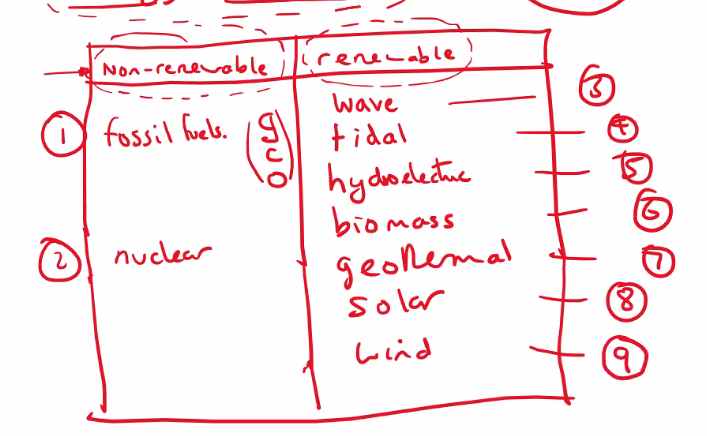 Non-renewable renewable
wave ③
① fossil fuels. (g c o) tidal ④
hydroelectric ⑤
biomass ⑥
② nuclear geothermal ⑦
solar ⑧
wind ⑨